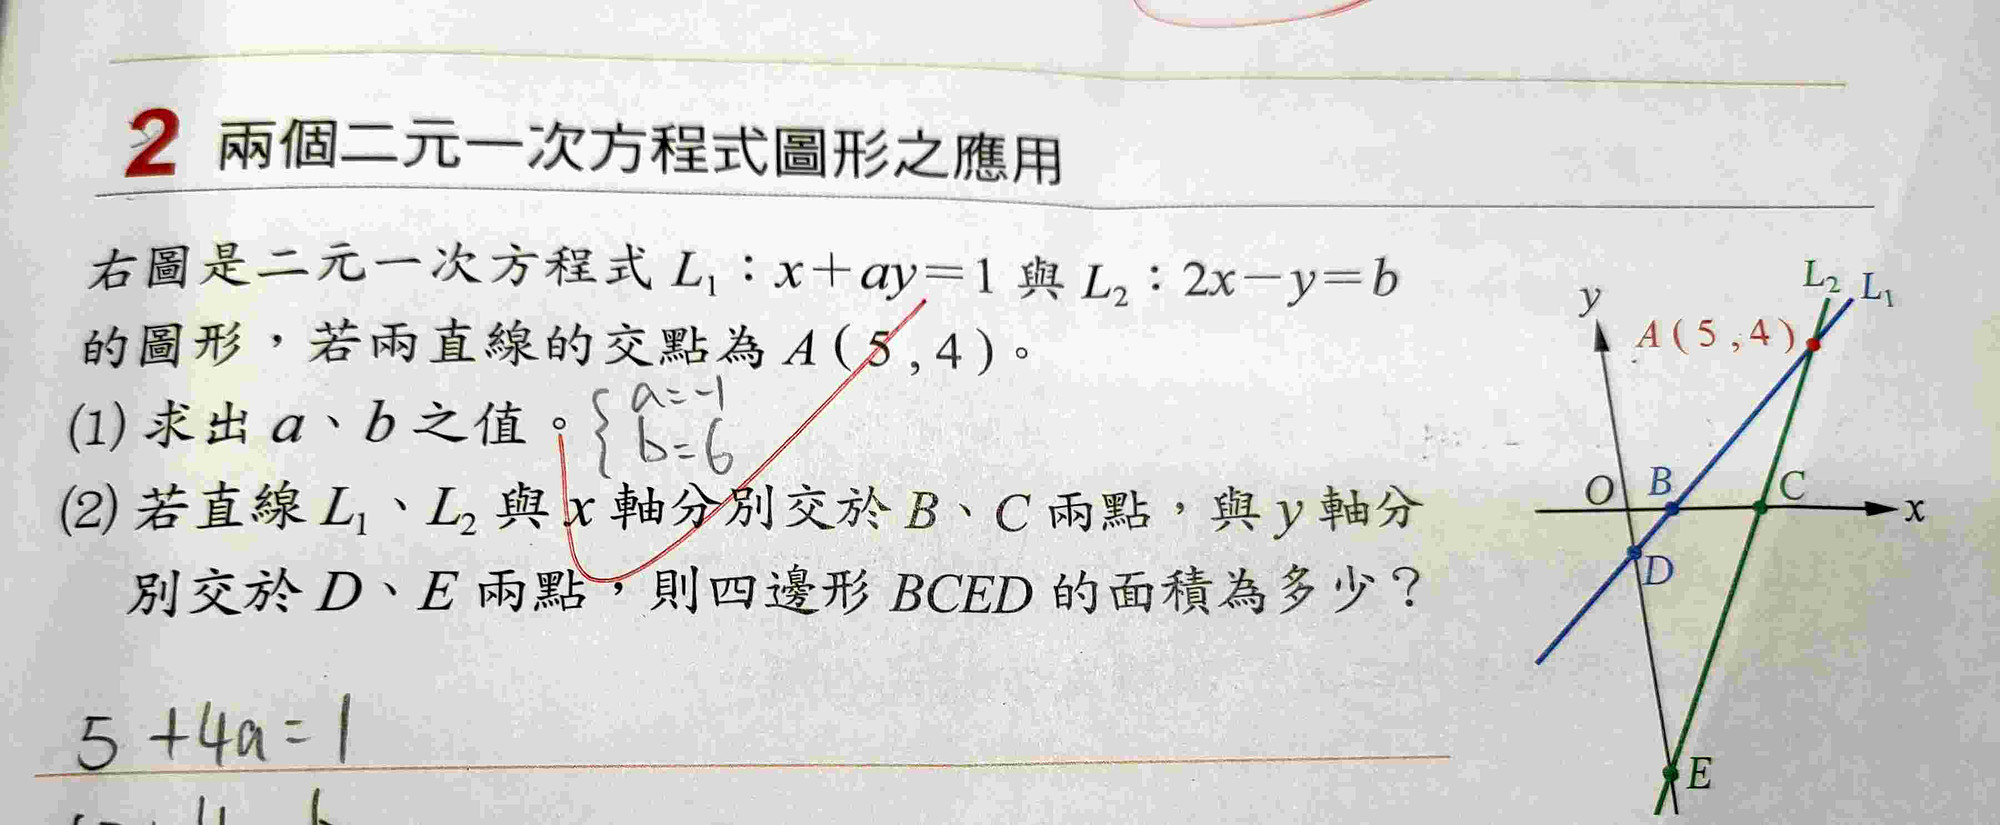 2 兩個二元一次方程式圖形之應用
右圖是二元一次方程式 L₁：x+ay=1 與 L₂：2x−y=b
的圖形，若兩直線的交點為 A(5,4)。
(1) 求出 a、b 之值。
{ a=-1
b=6
(2) 若直線 L₁、L₂ 與 x 軸分別交於 B、C 兩點，與 y 軸分
別交於 D、E 兩點，則四邊形 BCED 的面積為多少？
5+4a=1
L₂ L₁
y
A(5,4)
O B C x
D
E